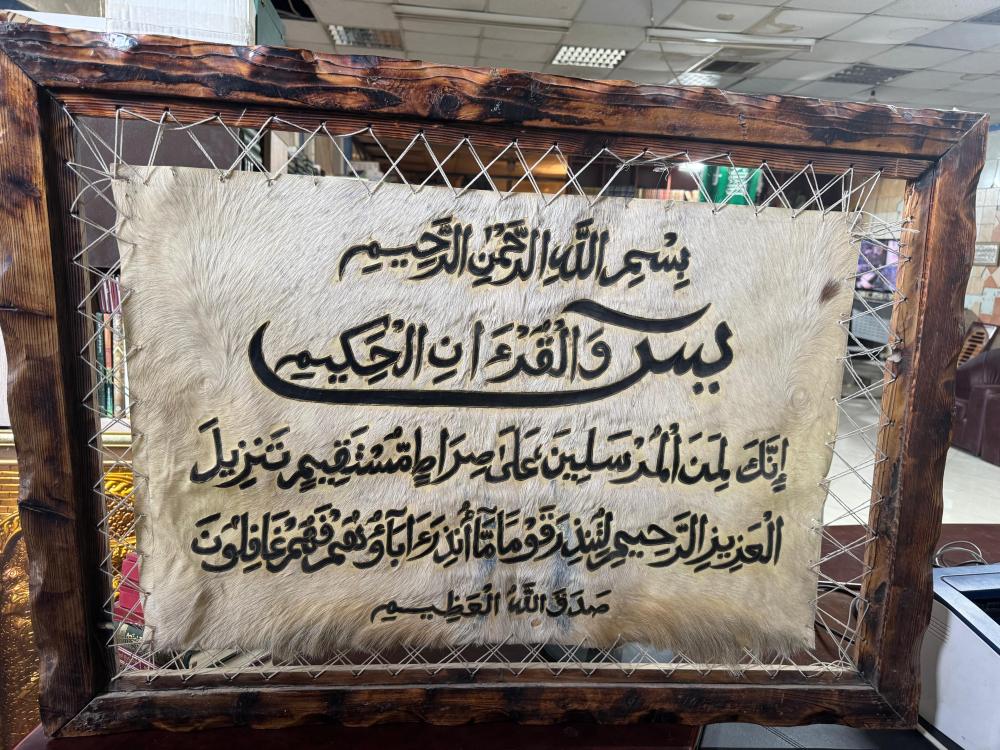 بِسْمِ اللَّهِ الرَّحْمَٰنِ الرَّحِيمِ
يس وَالْقُرْءَانِ الْحَكِيمِ
إِنَّكَ لَمِنَ الْمُرْسَلِينَ عَلَىٰ صِرَاطٍ مُّسْتَقِيمٍ تَنزِيلَ
الْعَزِيزِ الرَّحِيمِ لِتُنذِرَ قَوْمًا مَّا أُنذِرَ ءَابَآؤُهُمْ فَهُمْ غَافِلُونَ
صَدَقَ اللَّهُ الْعَظِيمِ